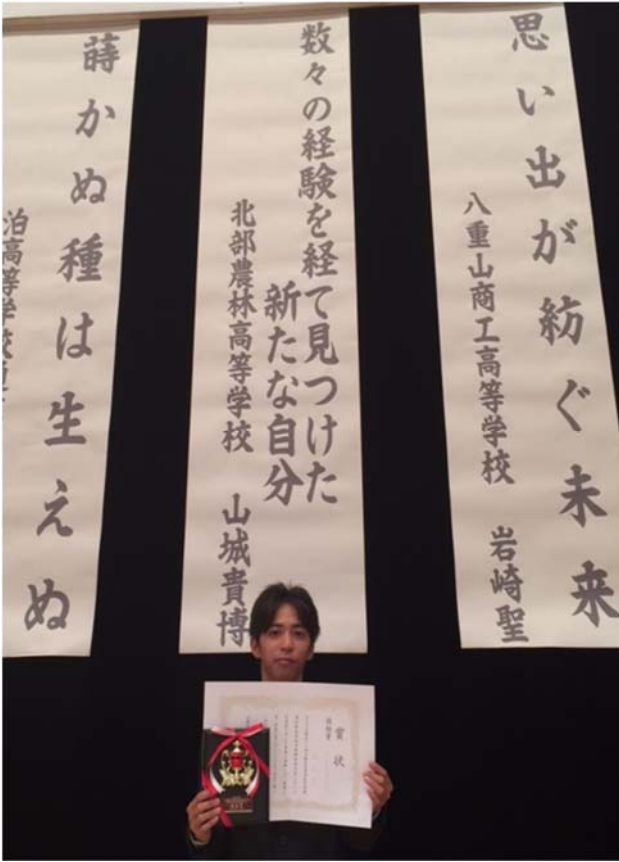 思い出が紡ぐ未来
八重山商工高等学校 岩崎聖
数々の経験を経て見つけた
新たな自分
北部農林高等学校 山城貴博
蒔かぬ種は生えぬ
泊高等学校
賞状